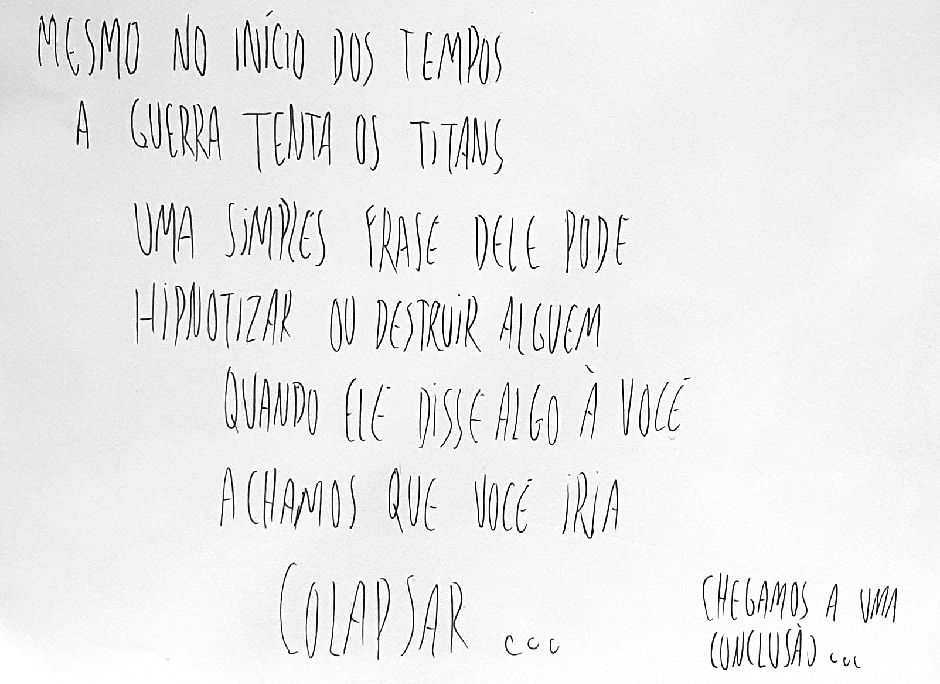 MESMO NO INÍCIO DOS TEMPOS
A GUERRA TENTA OS TITANS
UMA SIMPLES FRASE DELE PODE
HIPNOTIZAR OU DESTRUIR ALGUEM
QUANDO ELE DISSE ALGO À VOCÊ
ACHAMOS QUE VOCE IRIA
COLAPSAR ...
CHEGAMOS A UMA
CONCLUSÃO ...